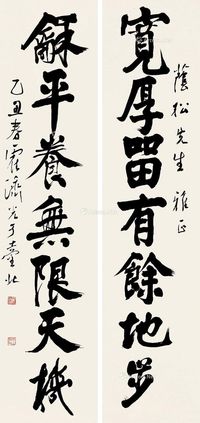 蔭松先生 雅正
寬厚畱有餘地步
龢平養無限天機
乙丑春霍濟光于臺北